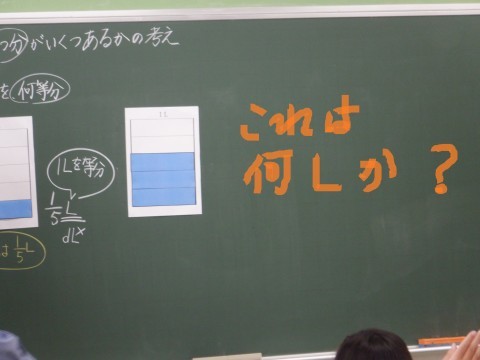 つ分がいくつあるかの考え
を何等分
1L
これは
何Lか?
1Lを等分
1/5 L
dL×
は1/5L